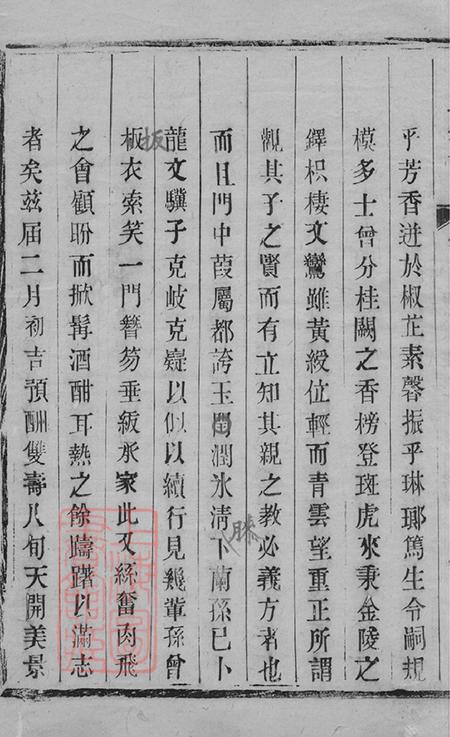 乎芳香迸於椒茝素馨振乎琳瑯篤生令嗣規
模多士曾分桂闕之香榜登斑虎來秉金陵之
鐸枳棲文鸞雖黃綬位輕而青雲望重正所謂
觀其子之賢而有立知其親之教必義方者也
而且門中葭屬都誇玉閏潤冰清卜蘭孫已卜
龍文驥子克岐克嶷以似以續行見幾輩孫曾
板衣索笑一門簪笏垂紱承家此又絲奮肉飛
之會顧盼而掀髯酒酣耳熱之餘躊躇以滿志
者矣茲屆二月初吉預酬雙壽八旬天開美景
扳
勝